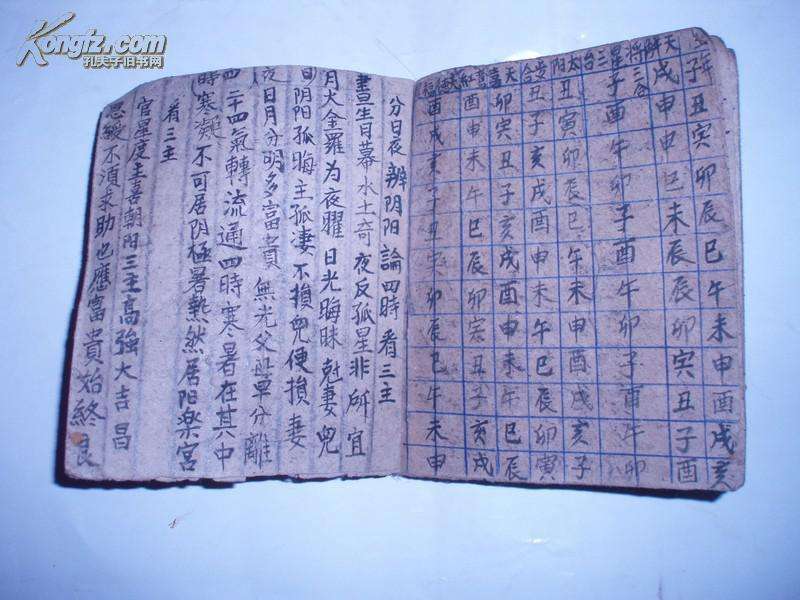 Kongfz.com
孔夫子旧书网
子丑寅卯辰巳午未申酉戌亥
天解戌申申巳未辰辰卯寅丑子酉
将三合
星子酉午卯子酉午卯子酉午卯
三台
太阳丑寅卯辰巳午未申酉戌亥子
丑子亥戌酉申未午巳辰卯寅
天喜卯寅丑子亥戌酉申未午巳辰
酉申未午巳辰卯寅丑子亥戌
酉戌亥子丑寅卯辰巳午未申
分日夜辨阴阳論四時看三主
晝生日幕水土奇夜反孤星非所宜
月火金羅为夜曜日光晦昧尅妻兒
日阴阳孤晦主孤淒不損兒便損妻
夜日月分明多富貴無光父母單分離
四二十四氣轉流通四時寒暑在其中
時寒凝不可居阴極暑热然居阳楽宮
看三主
官星度主喜朝阳三主高強大吉昌
恩 不須求助也應富貴始終良